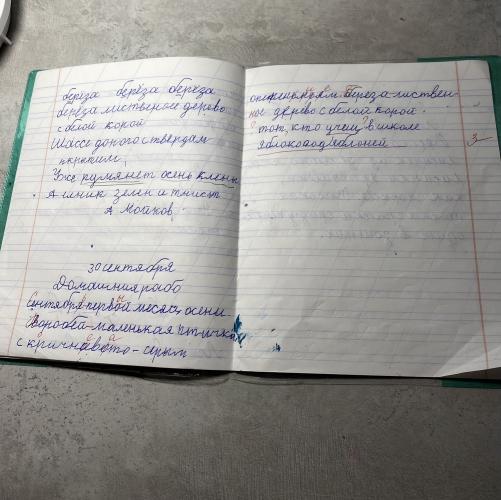 берёза берёза берёза
берёза лиственое дерево
с белой корой
Шассе дорого с твердам
пкрытием,
Уже румянет осень клен
А ельник зелен и тнист
А Мойков
30 сентября
Домашния рабо
Сентября-первой месяц осени
Воробей-маленькая птичка
с кричнавото-серым
оперением береза листвен-
ное дерево с белой корой.
тот, кто учещ в школе
3